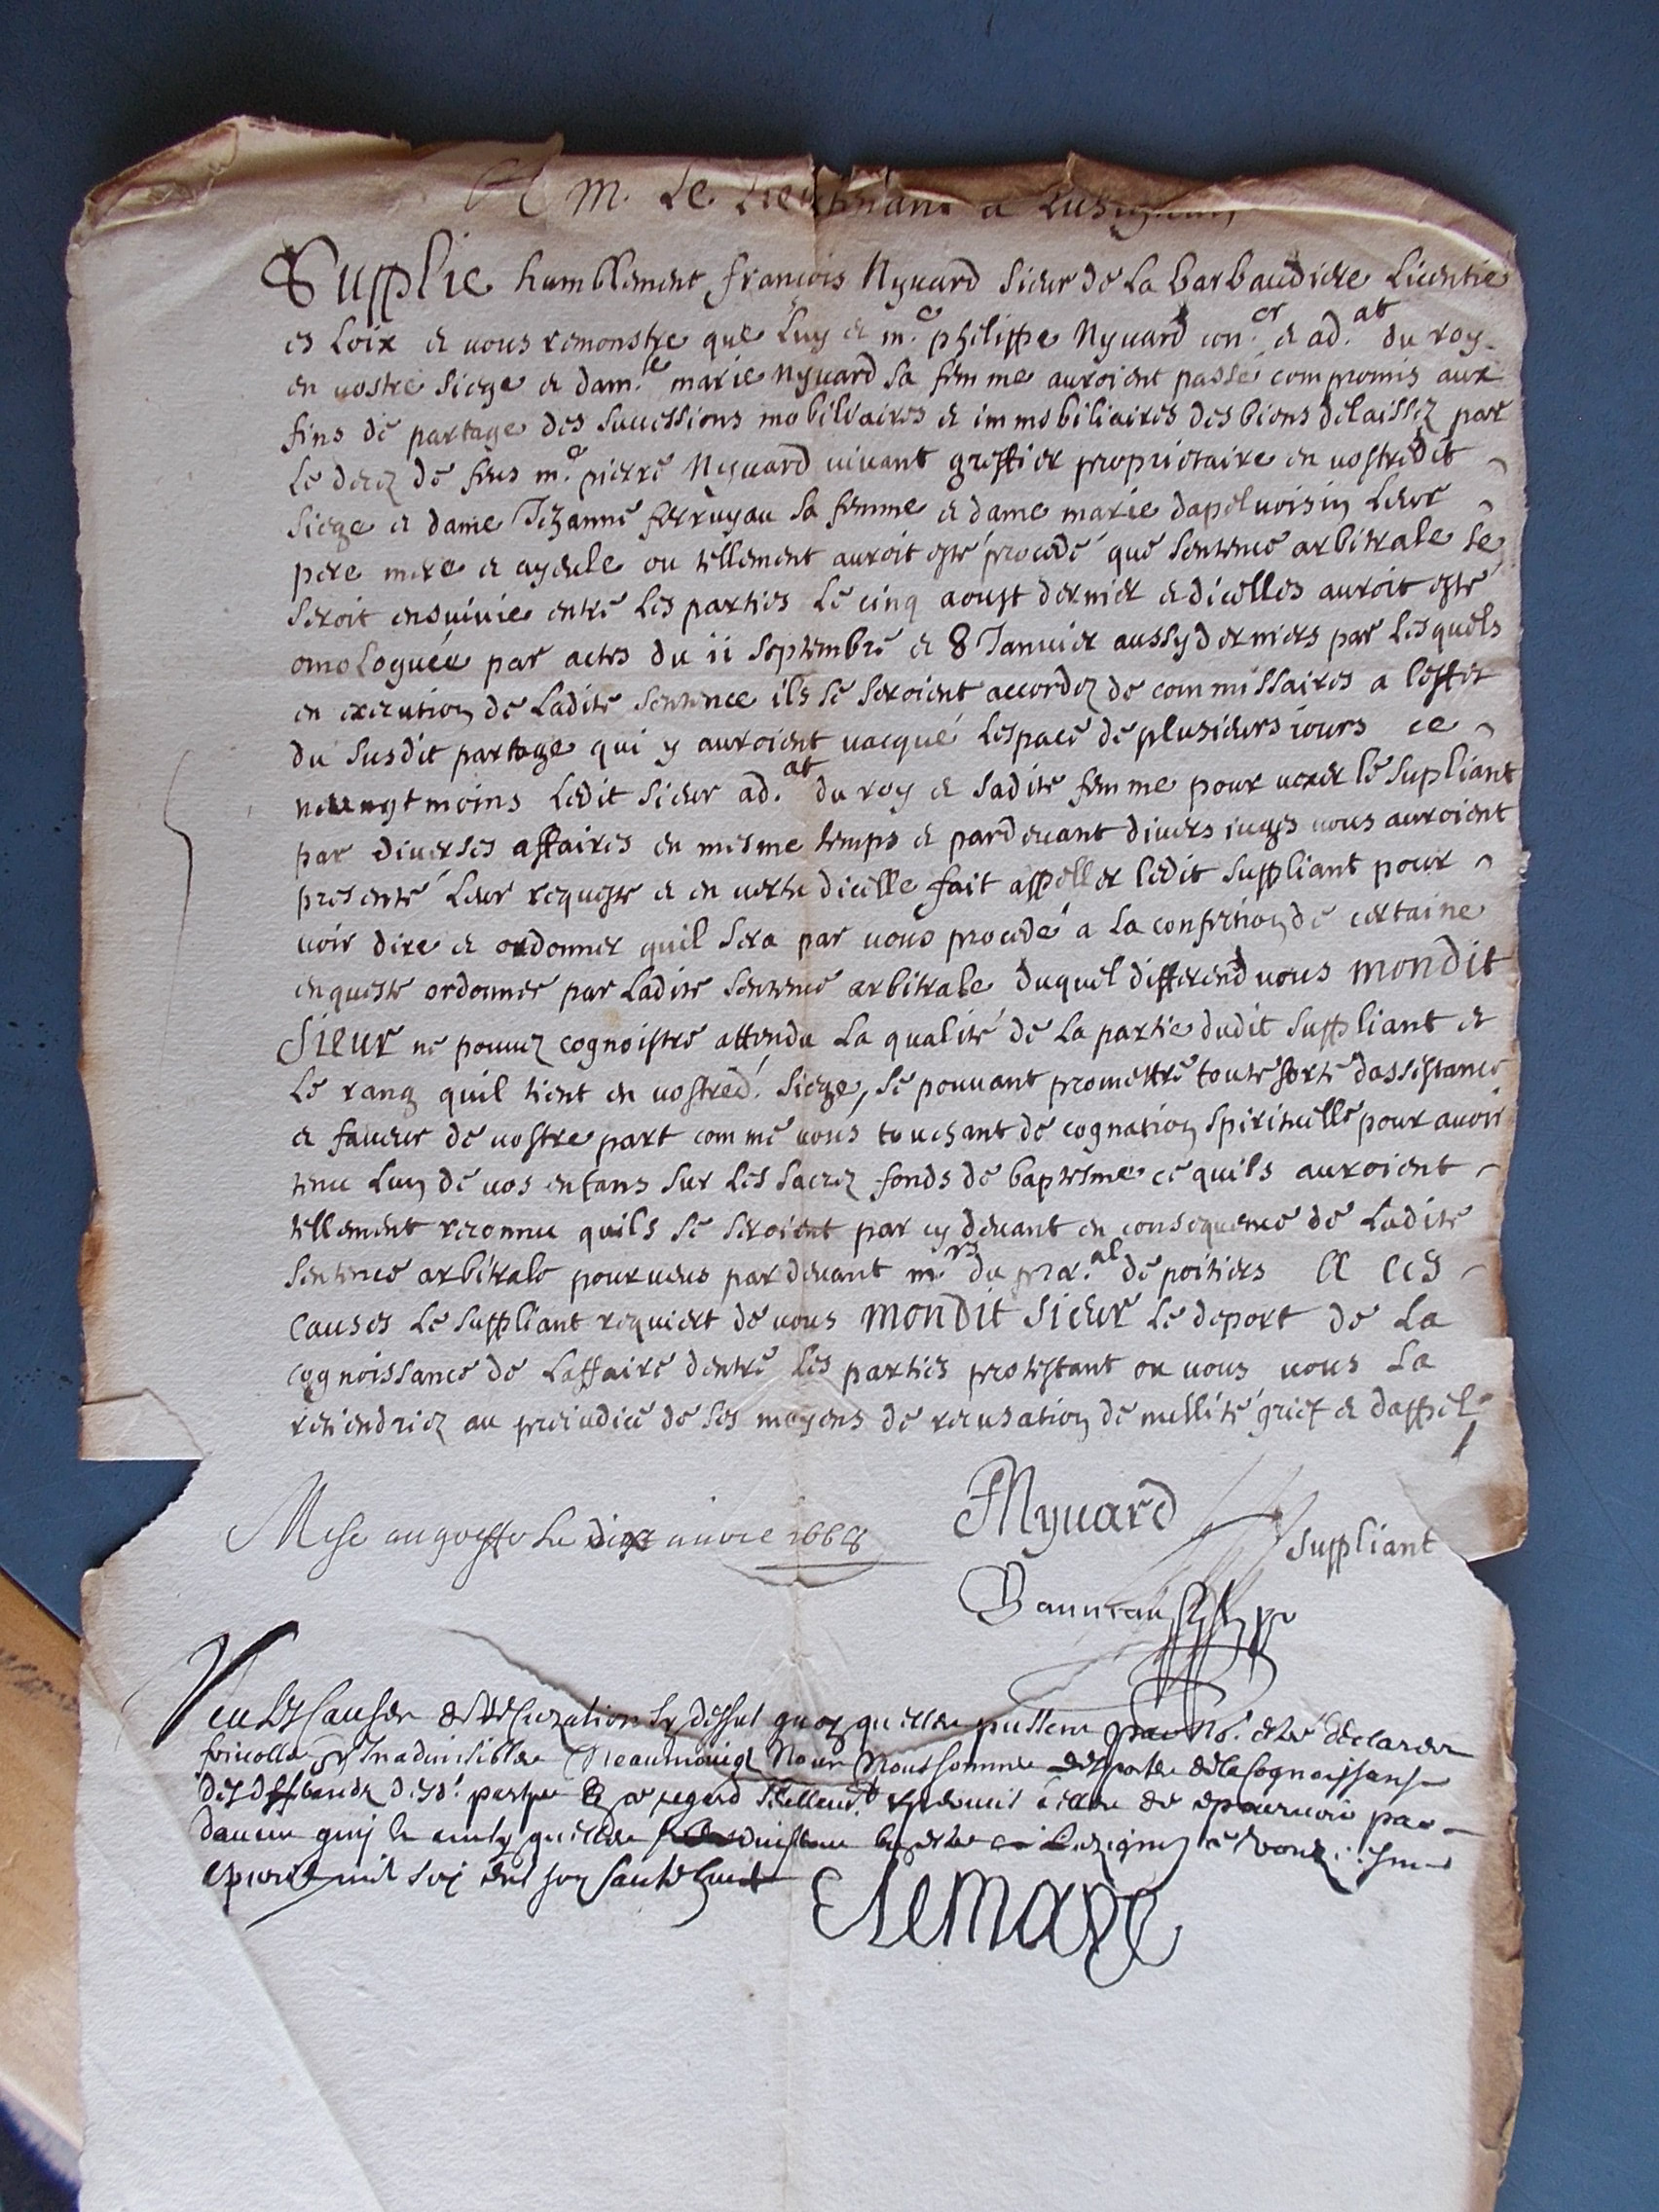 A M. Le Lieutenant a Lusignan
Supplie humblement francois Nyuard sieur de La barbaudiere Licentie
es Loix et vous remonstre que Luy et m.e philippe Nyuard con.er et ad.at du roy
en vostre siege et dam.le marie Nyuard sa femme auroient passé compromis aux
fins de partage des successions mobiliaires et immobiliaires des biens delaissez par
Le decez de feus m.e pierre Nyuard vivant greffier proprietaire en vostredit
siege et dame Jehanne ferruyau sa femme et dame marie dapeluoisin Leur
pere mere et ayeule ou tellement auroit esté procedé que sentence arbitrale se
seroit ensuivie entre Les parties Le cinq aoust dernier et dicelles auroit esté
omologuée par actes du 11 septembre et 8 Januier aussy derniers par Lesquels
en execution de Ladite sentence ils se seroient accordez de commissaires a leffet
du susdit partage qui y auroient vacqué Lespace de plusieurs iours ce
neumgt moins Ledit sieur ad.at du roy et sadite femme pour vexer le supliant
par diverses affaires en mesme temps et pardeuant divers iuges vous auroient
presenté Leur requeste et en vertu dicelle fait appeller ledit suppliant pour
voir dire et ordonner quil sera par vous procedé a La confection de certaine
enqueste ordonnée par Ladite sentence arbitrale duquel differend vous mondit
sieur ne pouuez cognoistre attendu La qualité de La partie dudit suppliant et
Le rang quil tient en vostred. siege, se pouuant promettre toute sorte dassistance
et faueur de vostre part comme vous touchant de cognation spirituelle pour auoir
tenu Lun de vos enfans sur Les sacrez fonds de baptesme ce quils auroient
tellement reconnu quils se seroient par cy deuant en consequence de Ladite
sentence arbitrale pourueus pardeuant m.rs du pre.al de poitiers A ces
causes Le suppliant requiert de vous mondit sieur Le deport de La
cognoissance de Laffaire dentre Les parties protestant ou vous vous La
retiendriez au preiudice de ses moyens de recusation de nullité grief et dappel
Nyuard
suppliant
Mise au greffe Le dix auvril 1668
Banneau
Veu Les Causes de Recuzation Cy dessus quoy quelles pussent par N.s estre declarees
friuolles et Inadmissibles Neaumoingz Nous Nous sommes deporté de la Cognoissance
des differendz desd. parties
mil six cent soixante huict
Clemare